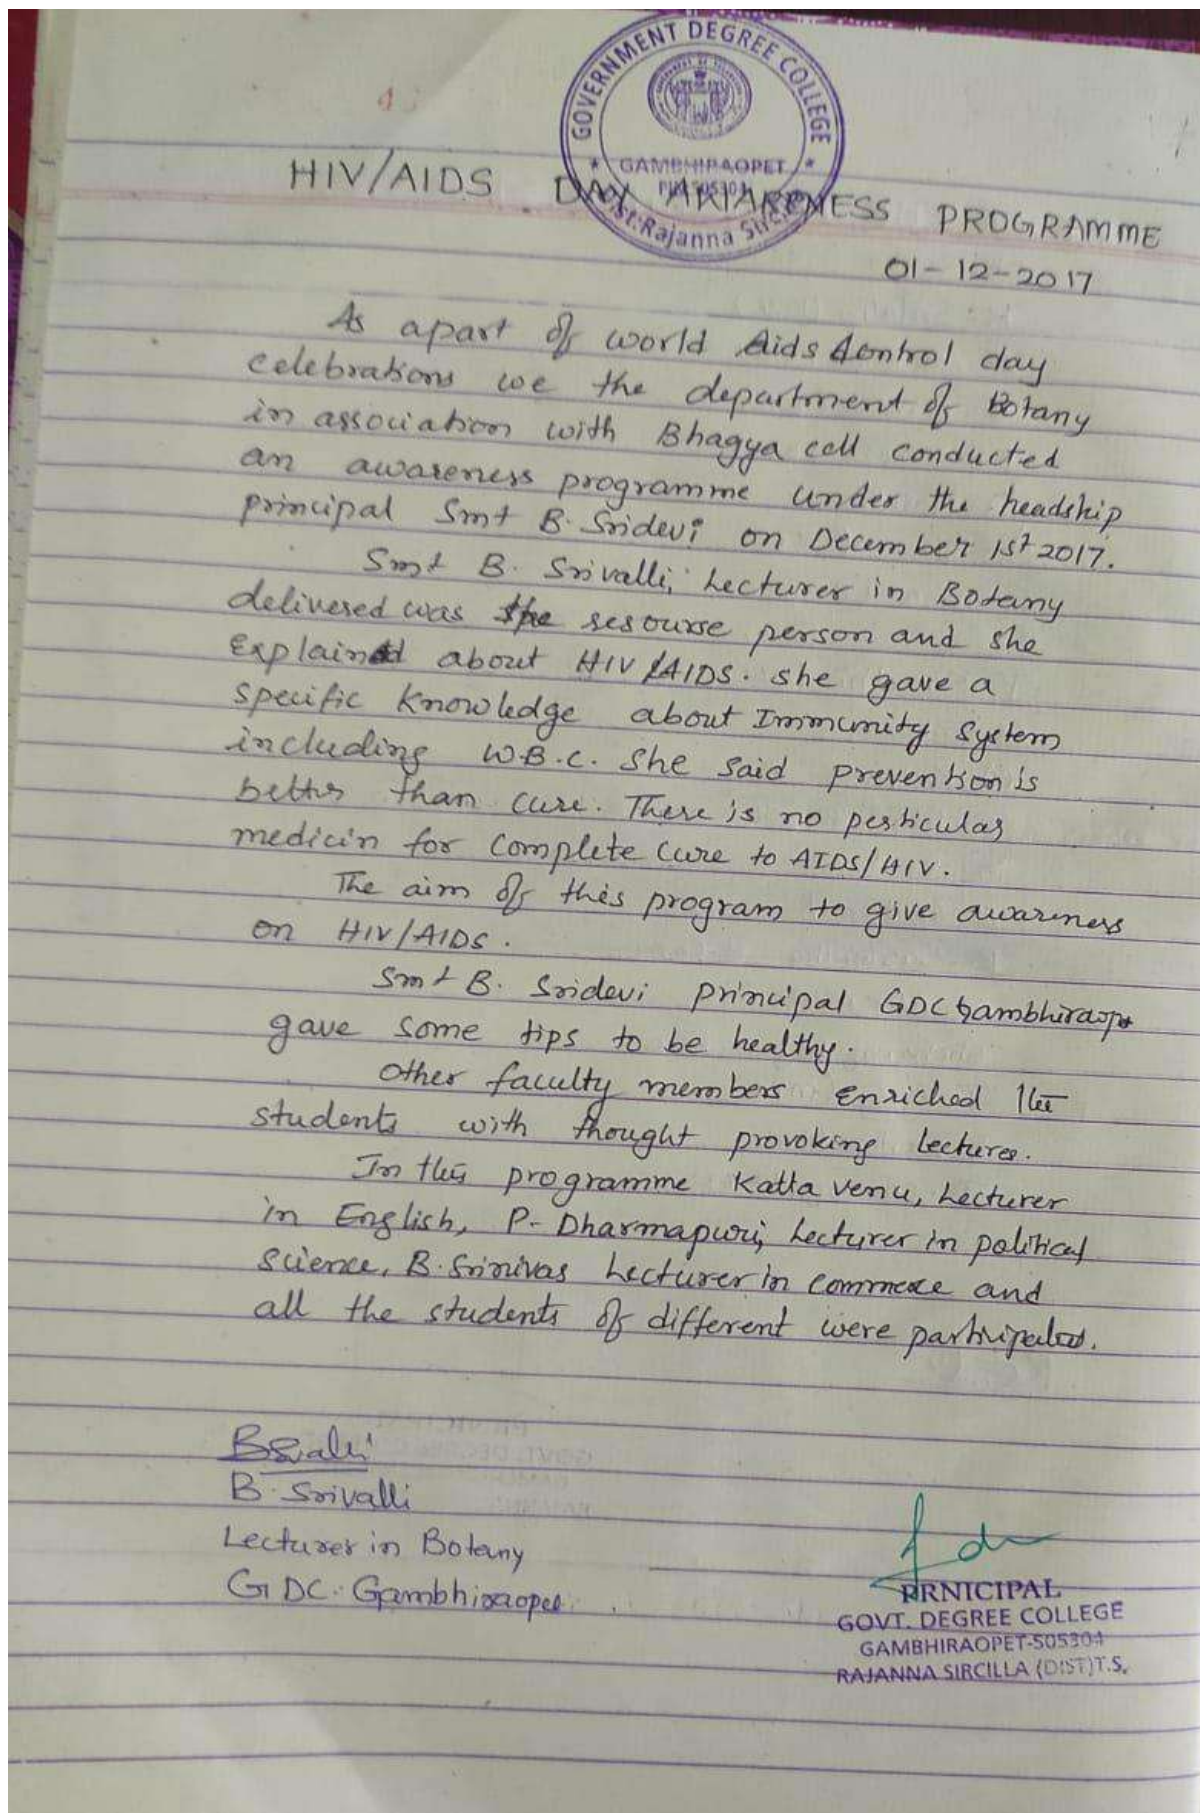 GOVERNMENT DEGREE COLLEGE
* GAMBHIRAOPET *
PIN-505304
Dist:Rajanna Sircilla
HIV/AIDS DAY AWARENESS PROGRAMME
01-12-2017
As apart of world Aids Control day
celebrations we the department of Botany
in association with Bhagya cell conducted
an awareness programme under the headship
principal Smt B. Sridevi on December 1st 2017.
Smt B. Srivalli, Lecturer in Botany
delivered was the resourse person and she
Explained about HIV/AIDS. she gave a
specific knowledge about Immunity System
including W.B.C. She said prevention is
better than cure. There is no perticular
medicin for complete cure to AIDS/HIV.
The aim of this program to give awareness
on HIV/AIDS.
Smt B. Sridevi principal GDC Gambhiraopt
gave some tips to be healthy.
Other faculty members Enriched the
students with thought provoking lectures.
In this programme Katta venu, Lecturer
in English, P. Dharmapuri, Lecturer in political
science, B. Srinivas Lecturer in commerce and
all the students of different were participated.
B. Srivalli
Lecturer in Botany
GDC. Gambhiraopet
PRNICIPAL
GOVT. DEGREE COLLEGE
GAMBHIRAOPET-505304
RAJANNA SIRCILLA (DIST)T.S.